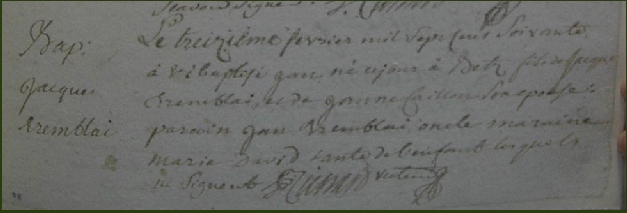 Bap:
jacques
tremblai
Le treizième fevrier mil sept cens soixante
à été baptisé jan, né ce jour à fils de jacque
tremblai, et de janne son epouse
parain jan tremblai oncle maraine
marie david tante de l'enfant lesquels
ne signent